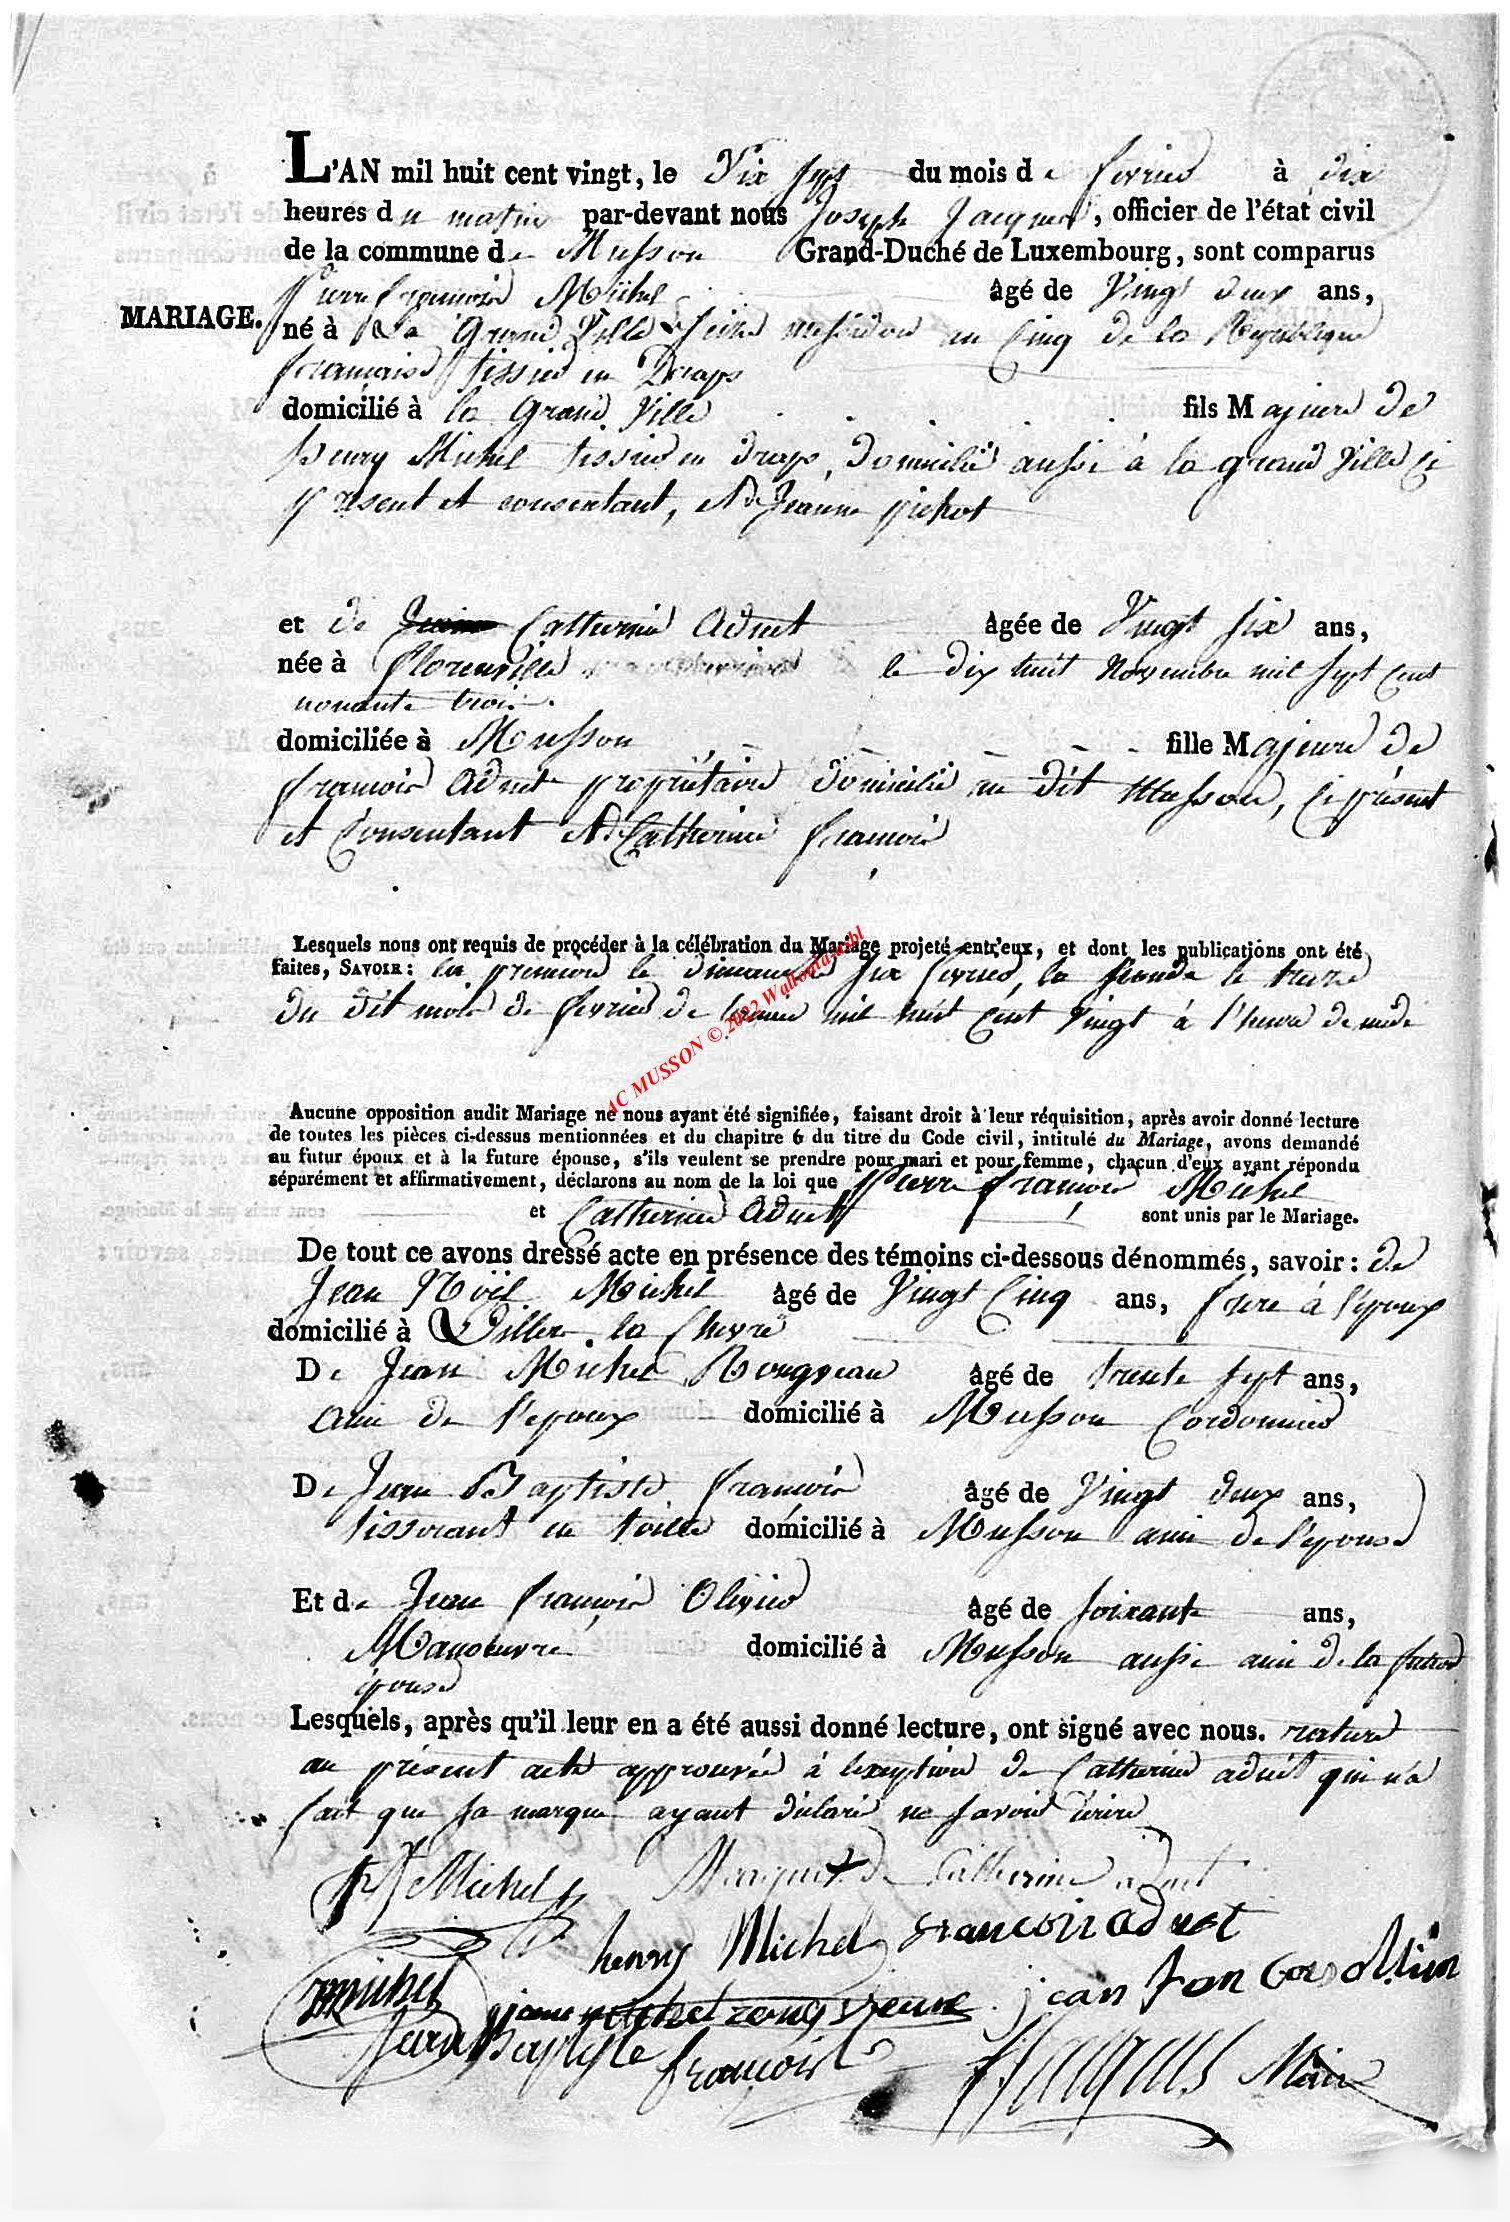 L'AN mil huit cent vingt, le Dix sept du mois de fevrier à dix
heures du matin par-devant nous Joseph Jacques, officier de l'état civil
de la commune de Musson Grand-Duché de Luxembourg, sont comparus
Pierre françois Michel âgé de Vingt deux ans,
MARIAGE.
né à La Grand Ville le seize messidor an Cinq de la Republique
francaise tissier en Draps
domicilié à la Grand Ville fils Majeur de
henry Michel tissier en draps, domicilié aussi à la grand Ville ci
present et consentant, et de Jeanne pichot
et de Catherine Adnet âgée de Vingt six ans,
née à florenville le dix huit Novembre mil sept cent
nonante trois.
domiciliée à Musson fille Majeure de
francois Adnet propriétaire domicilié au dit Musson, ci présent
et Consentant et de Catherine francois
Lesquels nous ont requis de procéder à la célébration du Mariage projeté entr'eux, et dont les publications ont été
faites, SAVOIR: la premiere le dimanche six fevrier, la seconde le treize
du dit mois de fevrier de l'année mil huit cent vingt à l'heure de midi
AC MUSSON © 2022 Wallonia asbl
Aucune opposition audit Mariage ne nous ayant été signifiée, faisant droit à leur réquisition, après avoir donné lecture
de toutes les pièces ci-dessus mentionnées et du chapitre 6 du titre du Code civil, intitulé du Mariage, avons demandé
au futur époux et à la future épouse, s'ils veulent se prendre pour mari et pour femme, chacun d'eux ayant répondu
séparément et affirmativement, déclarons au nom de la loi que Pierre françois Michel
et Catherine Adnet sont unis par le Mariage.
De tout ce avons dressé acte en présence des témoins ci-dessous dénommés, savoir: de
Jean Noël Michel âgé de Vingt Cinq ans, frere à l'epoux
domicilié à Viller la Chevre
De Jean Michel Rongveau âgé de trente sept ans,
ami de l'epoux domicilié à Musson Cordonnier
De Jean Baptiste francois âgé de Vingt deux ans,
tisserant en toille domicilié à Musson ami de l'epouse
Et de Jean françois Olivier âgé de soixante ans,
Manoeuvre domicilié à Musson aussi ami de la future
épouse
Lesquels, après qu'il leur en a été aussi donné lecture, ont signé avec nous. rature
au présent acte approuvée à l'exception de Catherine adnet qui n'a
fait que sa marque ayant déclaré ne savoir écrire
Michel Marque de Catherine adnet
henry Michel francois adnet
michel jean michel jean
Jean Baptiste francois Jacques Maire